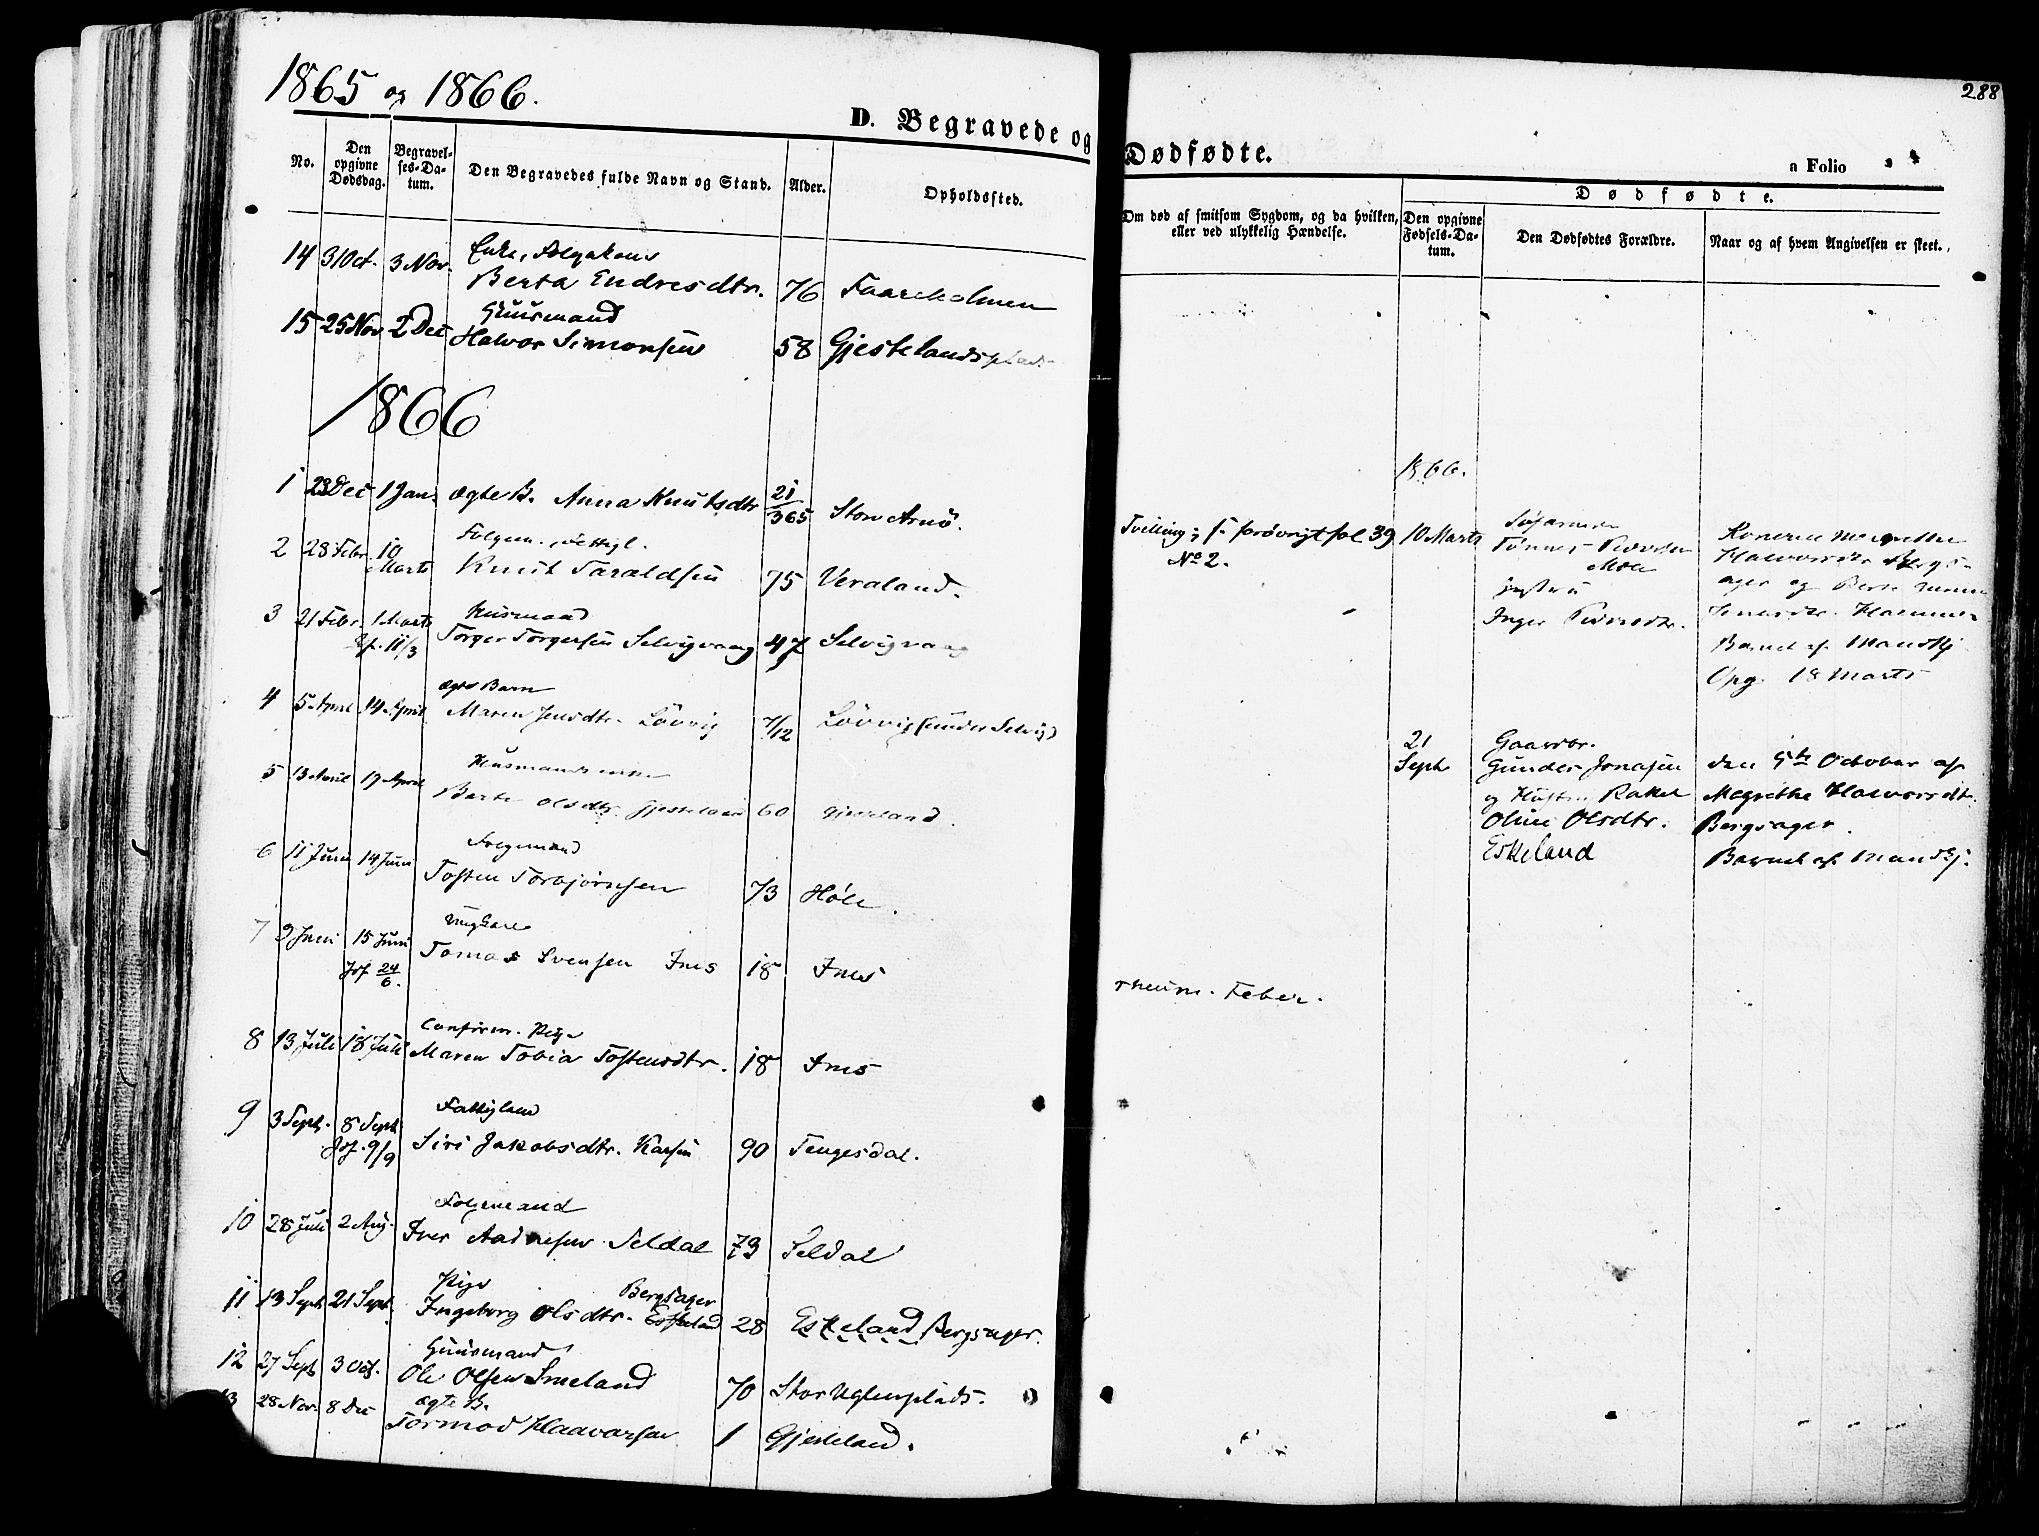 1865 og 1866.
288
D. Begravede og Dødfødte.
a Folio
No.
Den opgivne Dødsdag.
Begravelses-Datum.
Den Begravedes fulde Navn og Stand.
Alder.
Opholdssted.
Om død af smitsom Sygdom, og da hvilken, eller ved ulykkelig Hændelse.
Dødfødte.
Den opgivne Fødsels-Datum.
Den Dødfødtes Forældre.
Naar og af hvem Angivelsen er skeet.
Enke,
14 31 Oct. 3 Nov. Berta Endresdtr. 76 Faareholmen
Huusmand
15 25 Nov 2 Dec Halvor Simonsen 58 Gjestelandsplads
1866
1866.
1 23 Dec 1 Jan. ægte B. Anna Knutsdtr 21/365 Store Arnö.
2 28 Febr. 10 Marts Knut Taraldsen 75 Veraland.
Husmand
3 21 Febr. 1 Marts 11/3 Torger Torgersen Selvigvaag 47 Selvigvaag
ægte Barn
4 5 April 14 April Maren Jensdtr. Lövvig 7/12 Lövvig (under Selvig)
5 13 April 19 April Berte Olsdtr. Gjesteland 60 Gjesteland.
Folgemand
6 11 Juni 14 Juni Tosten Torbjörnsen 73 Höle.
Ungkarl
7 9 Juni 15 Juni Jof 24/6. Tomas Svensen Ims 18 Ims
rheum. Feber.
Confirm. Pige
8 13 Juli 18 Juli Maren Tobia Tostensdtr. 18 Ims
Fattiglem
9 3 Sept. 8 Sept Jof. 9/9 Siri Jakobsdtr. 90 Tengesdal.
Folgemand
10 28 Juli 2 Aug. Iver Aadnesen Seldal 73 Seldal
Pige Bergsager
11 13 Sept 21 Sept. Ingeborg Olsdtr. Eskeland 28 Eskeland Bergsager.
Huusmand
12 27 Sept 3 Oct. Ole Olsen Imeland 70
ægte B.
13 28 Nov. 8 Dec Tormod Haavarsen 1 Gjesteland.
Tvilling; fol 39
No 2.
10 Marts
Tønnes
Hustru
Inger
Konerne
og Berte
Barnet af Mandkj
Opg. 18 Marts
21 Sept
Gaardbr.
Gunder Jonasen
og Hustru Rakel
Oline Olsdtr.
Eskeland
den 5te October af
Megrethe Halvorsdt.
Bergsager.
Barnet af Mandkj.